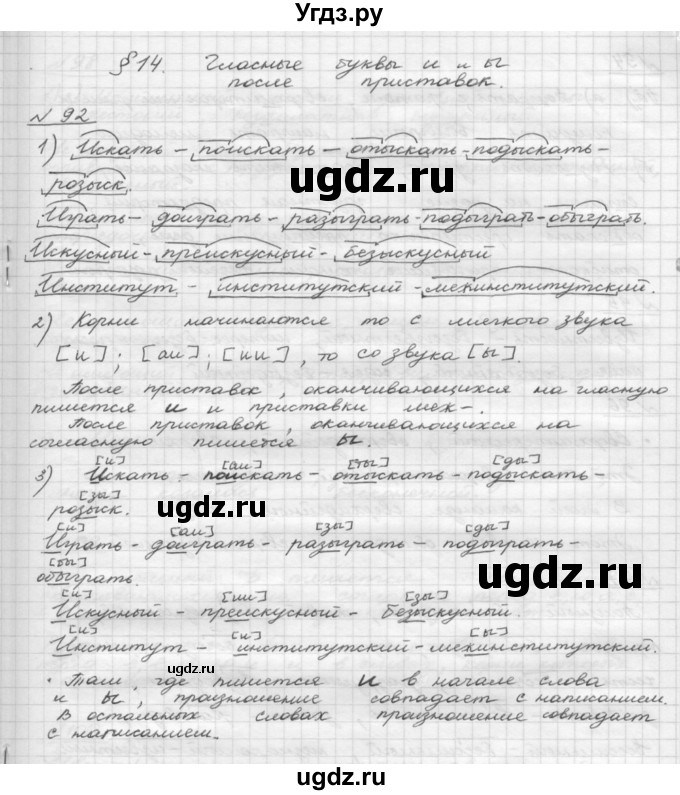 Угдз.ру
§ 14. Гласные буквы и и ы
после приставок.
№ 92
1) Искать – поискать – отыскать - подыскать -
розыск.
Играть - доиграть - разыграть - подыграть - обыграть.
Искусный - преискусный - безыскусный
Институт - институтский - межинститутский.
2) Корни начинаются то с мягкого звука
[и]; [аи]; [ии], то со звука [ы].
После приставок, оканчивающихся на гласную
пишется и и приставки меж-.
После приставок, оканчивающихся на
согласную пишется ы.
[и] [аи] [ты] [ды]
3) Искать - поискать - отыскать - подыскать -
[зы]
розыск.
[и] [аи] [зы] [ды]
Играть - доиграть - разыграть - подыграть -
[бы]
обыграть.
[и] [ии] [зы]
Искусный - преискусный - безыскусный.
[и] [и] [ы]
Институт - институтский - межинститутский.
· Там, где пишется и в начале слова
и ы, произношение совпадает с написанием.
В остальных словах произношение совпадает
с написанием.
ugdz.ru
ugdz.ru
ugdz.ru
ugdz.ru
ugdz.ru
ugdz.ru